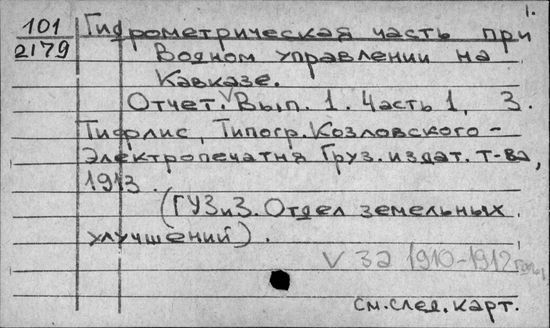 1.
101
2179
Гидрометрическая часть при
Водном управлении на
Кавказе.
Отчет. Вып. 1. Часть 1, 3.
Тифлис, Типогр. Козловского -
Электропечатня Груз. издат. т-ва,
1913.
(ГУЗиЗ. Отдел земельных
улучшений).
V за 1910-1912 годы.
см. след. карт.